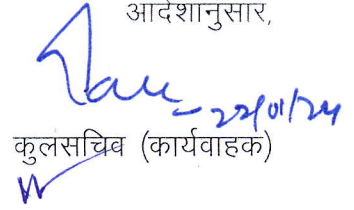 आदेशानुसार,
22/01/24
कुलसचिव (कार्यवाहक)